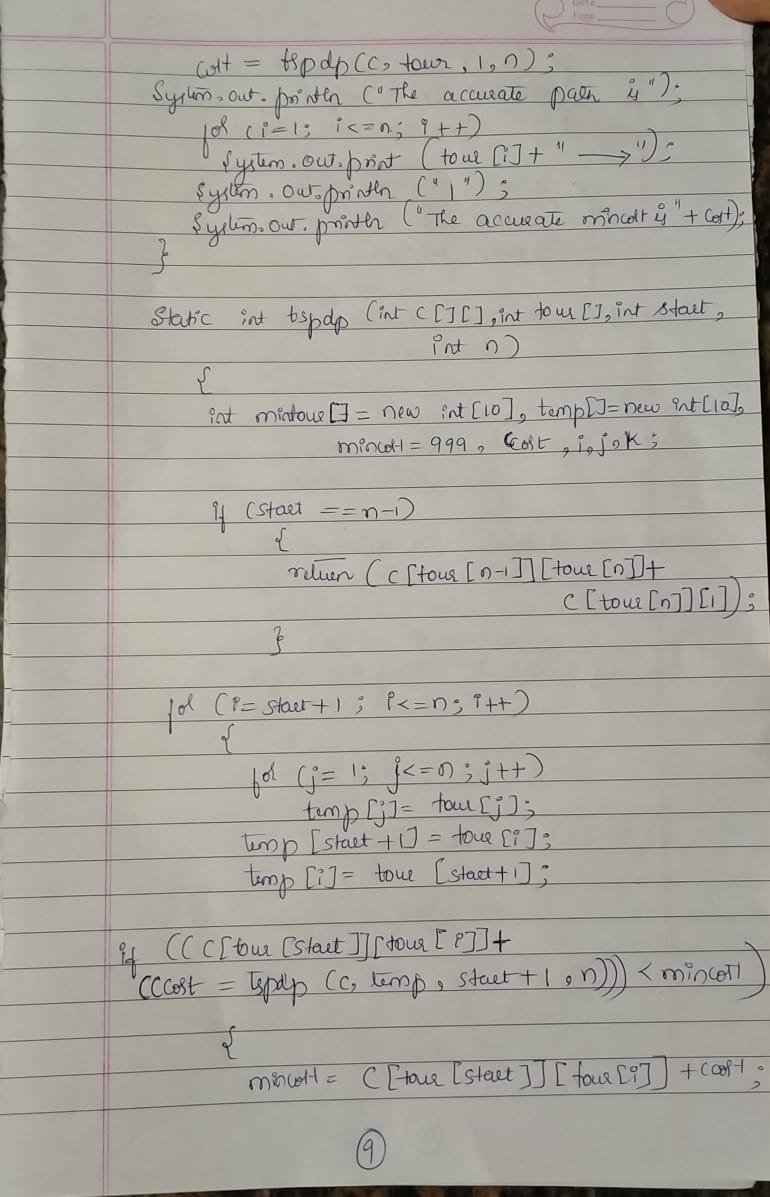 Date
Page
cost = tspdp(c, tour, 1, n);
System.out.println ("The accurate path is");
for (i=1; i<=n; i++)
System.out.print (tour [i] + " ⟶");
System.out.println ("1");
System.out.println ("The accurate mincost is" + cost);
}
Static int tspdp (int c [][], int tour [], int start,
int n)
{
int mintour[] = new int [10], temp[]=new int[10],
mincost = 999, cost, i, j, k;
if (start == n-1)
{
return (c [tour [n-1]] [tour [n]] +
c [tour [n]] [1]);
}
for (i= start+1; i<=n; i++)
{
for (j= 1; j<=n; j++)
temp [j]= tour [j];
temp [start +1] = tour [i];
temp [i]= tour [start+1];
if ((c [tour [start]] [tour [i]] +
(cost = tspdp (c, temp, start+1, n))) < mincost)
{
mincost = c [tour [start]] [tour [i]] + cost;
9